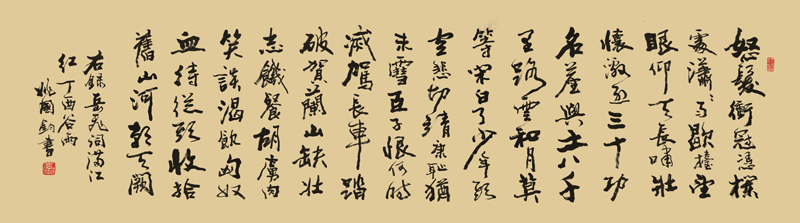 怒髮衝冠憑欄
處瀟々雨歇擡望
眼仰天長嘯壯
懷激烈三十功
名塵與土八千
里路雲和月莫
等閑白了少年頭
空悲切靖康耻猶
未雪臣子恨何時
滅駕長車踏
破賀蘭山缺壯
志饑餐胡虜肉
笑談渴飲匈奴
血待從頭收拾
舊山河朝天闕
右錄岳飛詞滿江
紅丁酉谷雨
姚國書